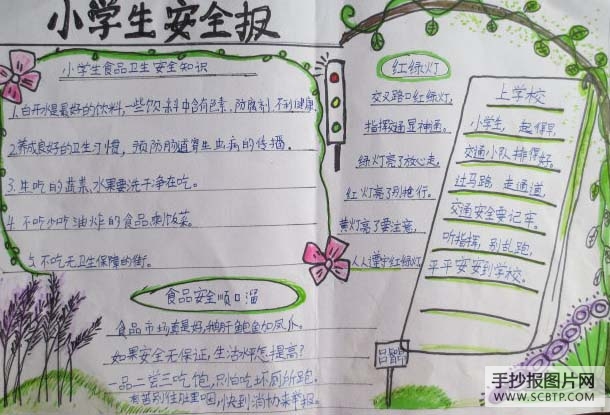 小学生安全报
小学生食品卫生安全知识
1.白开水是最好的饮料,一些饮料中含有色素、防腐剂,不利健康
2.养成良好的卫生习惯,预防肠道寄生虫病的传播。
3.生吃的蔬菜,水果要洗干净在吃。
4.不吃 油炸的食品剩饭菜。
5.不吃无卫生保障的街。
食品安全顺口溜
食品市场真是好,鹅肝鲍鱼加凤爪。
如果安全无保证,生活水平怎提高?
一品二尝三吃饱,只怕吃坏厕所跑。
快到消协来举报。
红绿灯
交叉路口红绿灯,
指挥交通显神通。
绿灯亮了放心走,
红灯亮了别抢行。
黄灯亮了要注意,
人人遵守红绿灯
上学校
小学生,起得早,
交通小队排得好。
过马路,走通道,
交通安全要记牢。
听指挥,别乱跑,
平平安安到学校。
手抄报图片网
WWW.SCBTP.COM